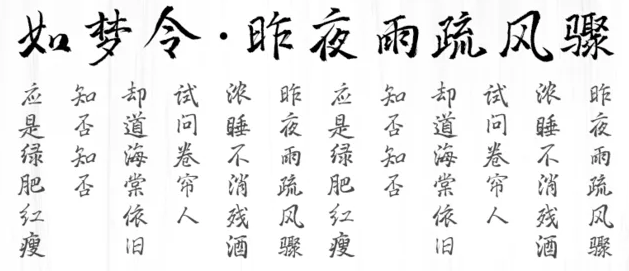 如梦令·昨夜雨疏风骤
昨夜雨疏风骤
浓睡不消残酒
试问卷帘人
却道海棠依旧
知否知否
应是绿肥红瘦
昨夜雨疏风骤
浓睡不消残酒
试问卷帘人
却道海棠依旧
知否知否
应是绿肥红瘦